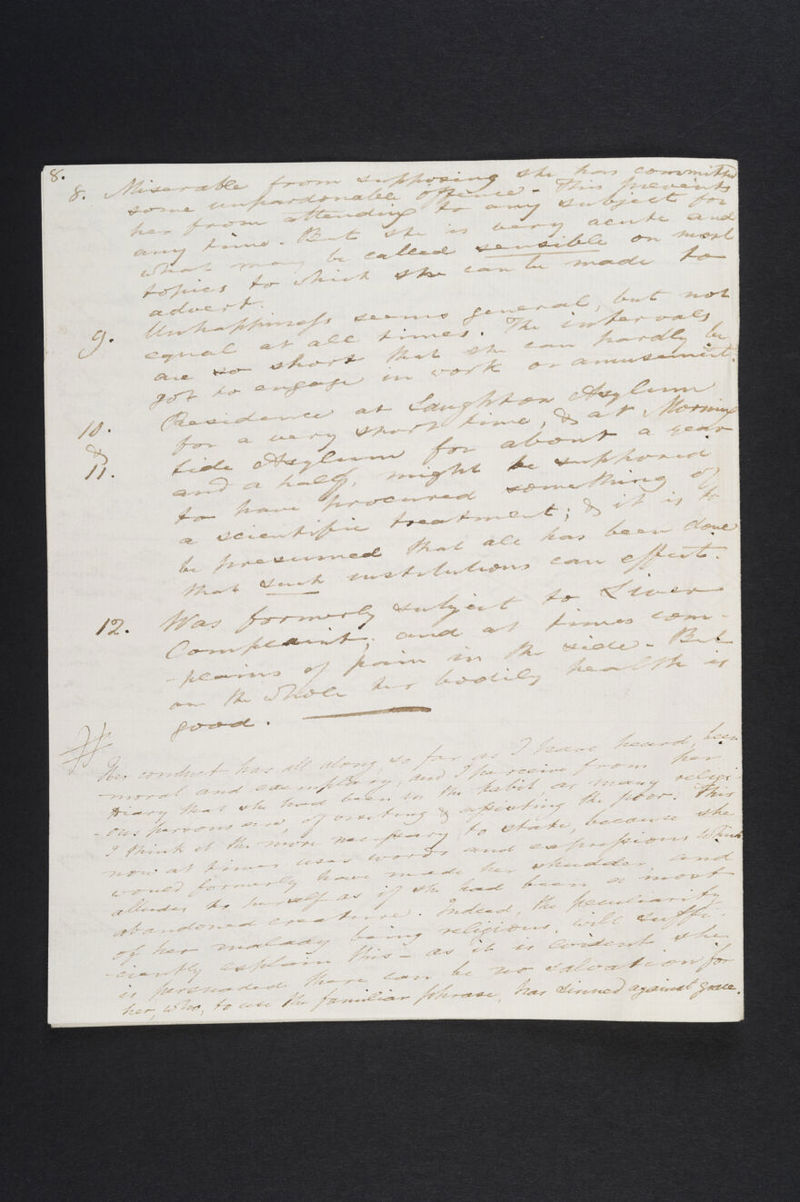 8.
8. Miserable from supposing she has committed
some unpardonable offence - This prevents
her from attending to any subject for
any time. - But she is very acute and
what may be called sensible on most
topics to which she can be made to
advert.
9. Unhappiness seems general, but not
equal at all times. The intervals
are so short that she can hardly be
got to engage in work or amusement.
10. Residence at Saughton Asylum
for a very short time, & at Morning
& side Asylum for about a year
11. and a half, might be supposed
to have procured something of
a scientific treatment; & it is to
be presumed that all has been done
that such institutions can effect.
12. Was formerly subject to Liver
Complaint; and at times com-
-plains of pain in the side - But
on the whole her bodily health is
good.
Her conduct has all along, so far as I have heard, been
moral and exemplary, and I perceive from her
Diary that she had been in the habit, as many religi-
-ous persons are, of visiting & assisting the poor. This
I think it the more necessary to state, because she
now at times uses words and expressions which
would formerly have made her shudder, and
alludes to herself as if she had been a most
abandoned creature. Indeed, the peculiarity
of her malady being religious, will suffi-
-ciently explain this - as it is evident she
is persuaded there can be no salvation for
her, who, to use the familiar phrase, has sinned against grace.